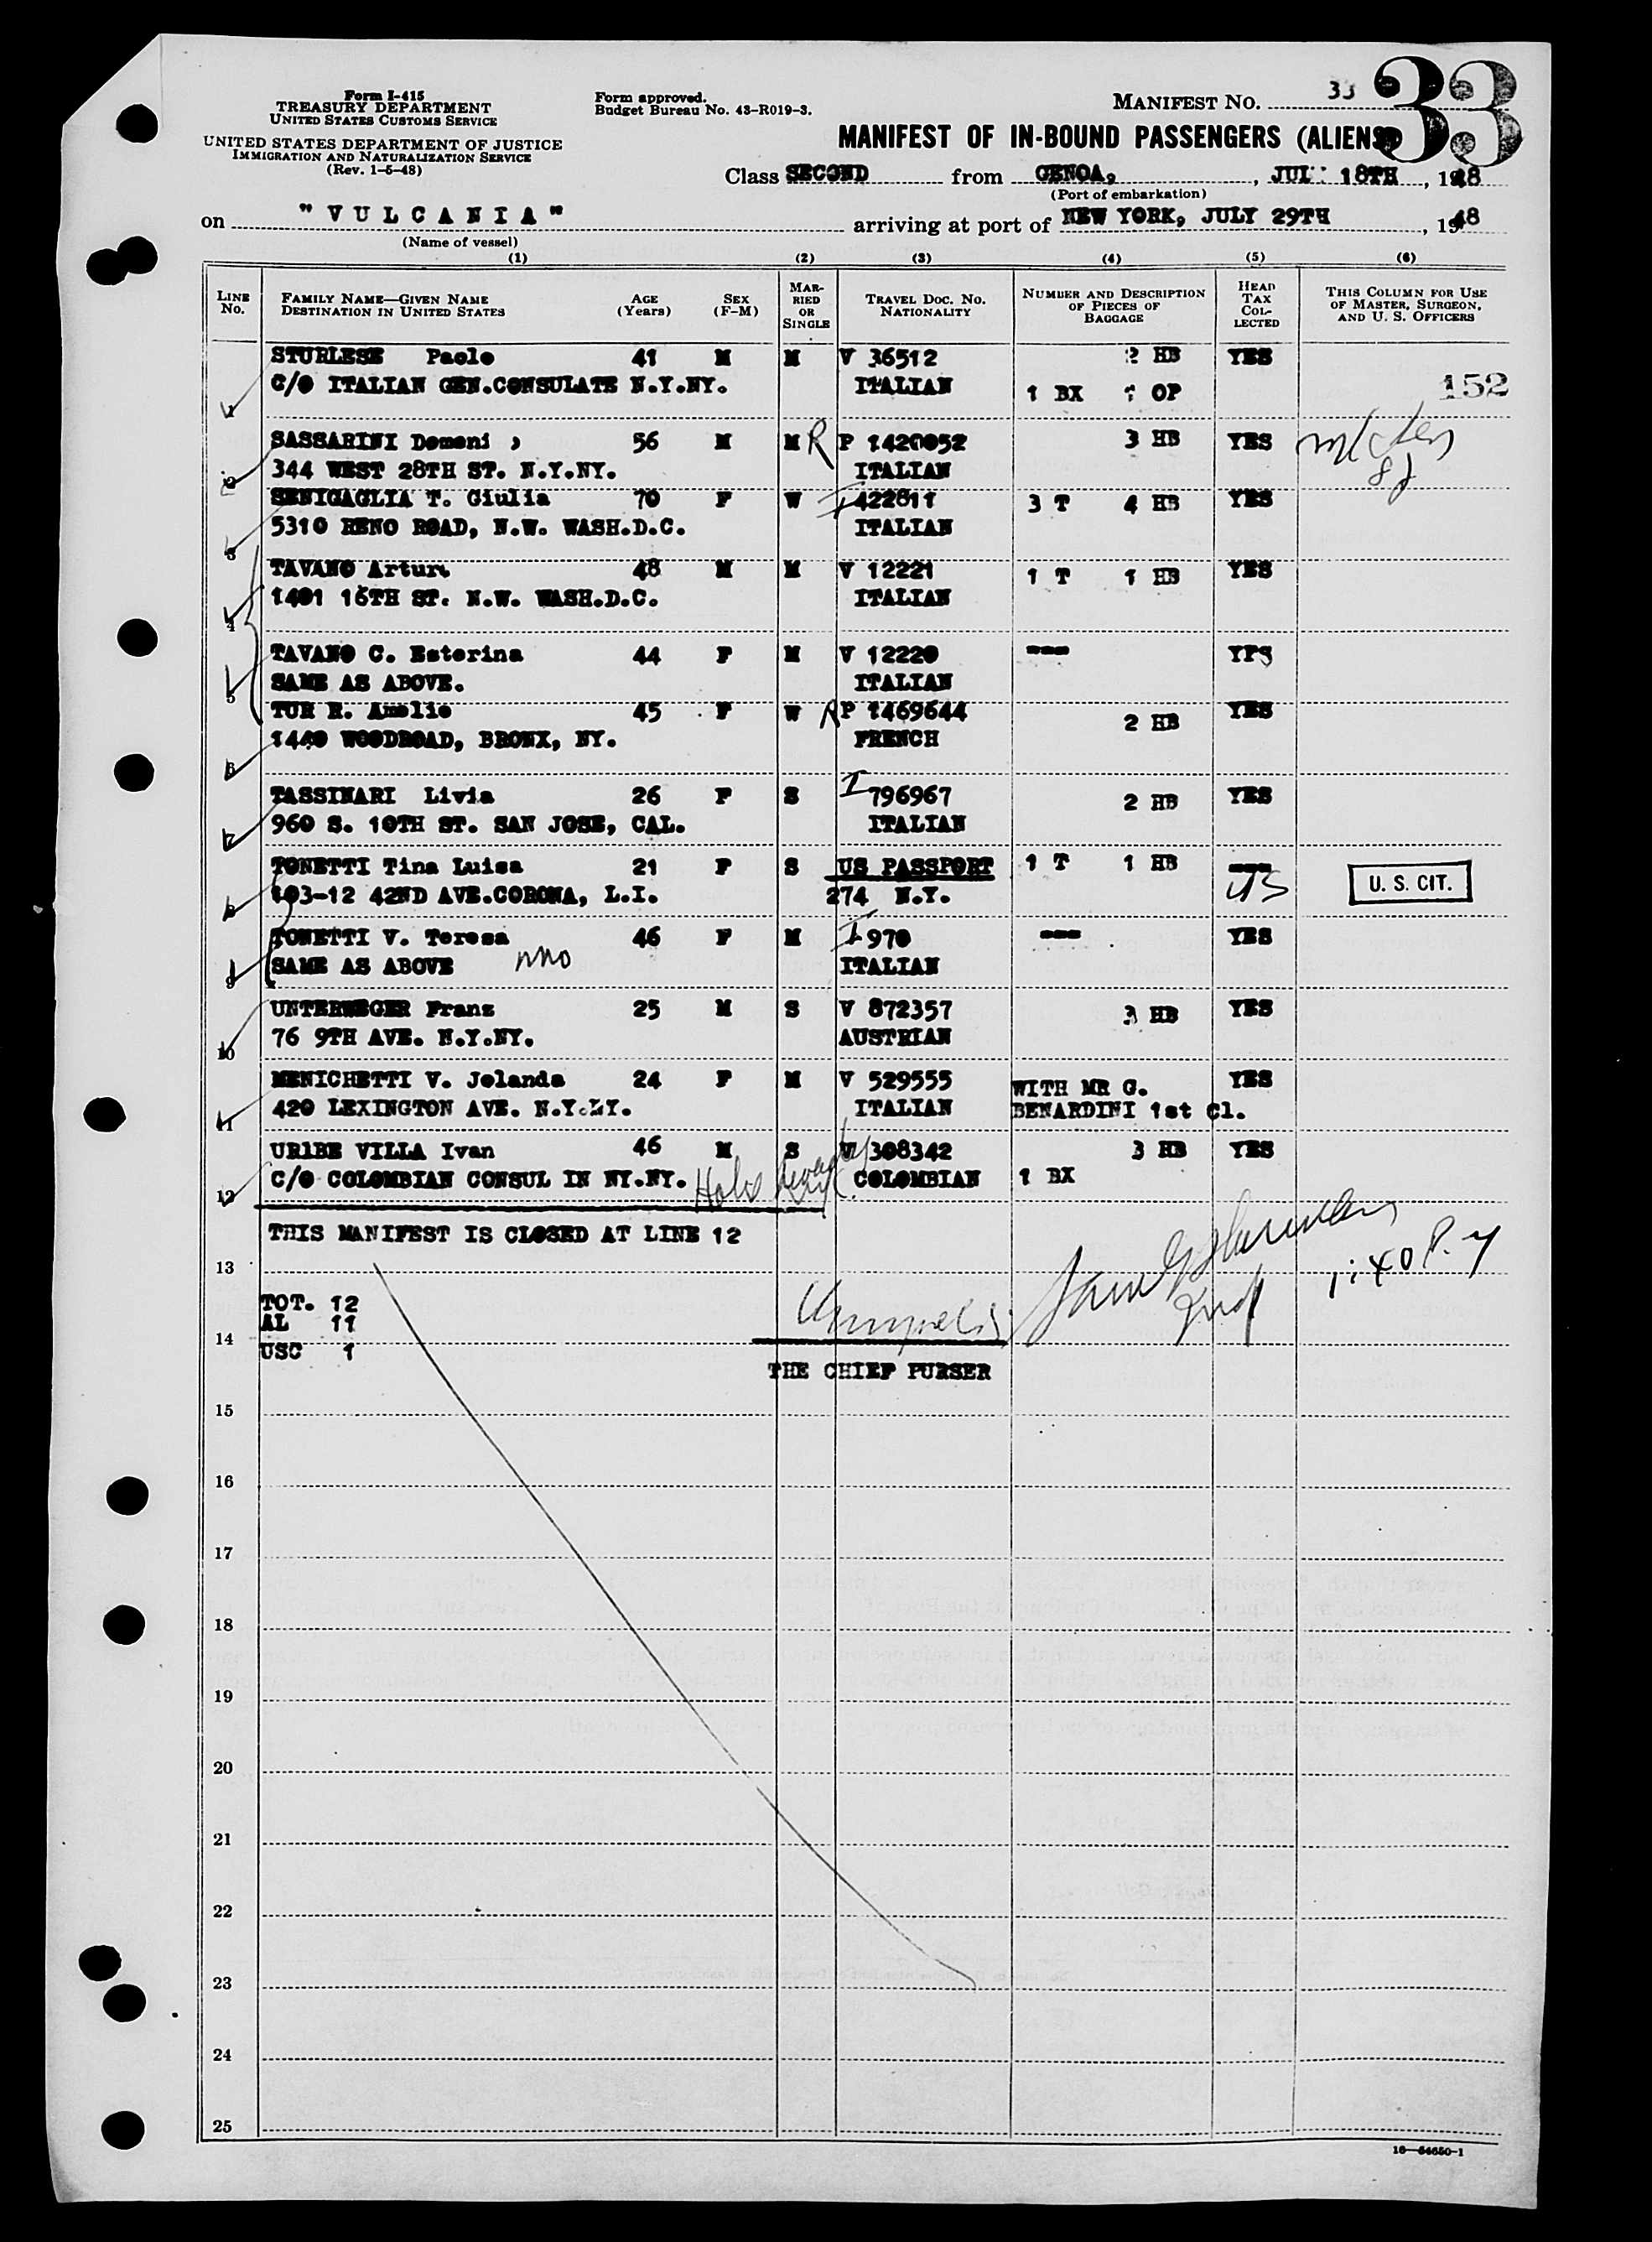 Form I-415
TREASURY DEPARTMENT
UNITED STATES CUSTOMS SERVICE
UNITED STATES DEPARTMENT OF JUSTICE
IMMIGRATION AND NATURALIZATION SERVICE
(Rev. 1-5-48)
Form approved.
Budget Bureau No. 43-R019-3.
MANIFEST NO. 33
33
MANIFEST OF IN-BOUND PASSENGERS (ALIENS)
Class SECOND from GENOA, , JULY 18TH, 1948
(Port of embarkation)
on "VULCANIA" arriving at port of NEW YORK, JULY 29TH, 1948
(Name of vessel)
(1) (2) (3) (4) (5) (6)
LINE No. FAMILY NAME—GIVEN NAME DESTINATION IN UNITED STATES AGE (Years) SEX (F-M) MARRIED OR SINGLE TRAVEL DOC. NO. NATIONALITY NUMBER AND DESCRIPTION OF PIECES OF BAGGAGE HEAD TAX COLLECTED THIS COLUMN FOR USE OF MASTER, SURGEON, AND U. S. OFFICERS
STURLESE Paolo 41 M M V 36512 2 HB YES
1 C/O ITALIAN GEN.CONSULATE N.Y.NY. ITALIAN 1 BX 1 OP 152
SASSARINI Domeni 56 M M R P 1420052 3 HB YES
2 344 WEST 28TH ST. N.Y.NY. ITALIAN
SENIGAGLIA T. Giulia 70 F W I 422811 3 T 4 HB YES
3 5310 RENO ROAD, N.W. WASH.D.C. ITALIAN
TAVANO Arturo 48 M M V 12221 1 T 1 HB YES
4 1401 16TH ST. N.W. WASH.D.C. ITALIAN
TAVANO C. Esterina 44 F M V 12220 --- YES
5 SAME AS ABOVE. ITALIAN
TUR R. Amelie 45 F W R P 1469644 2 HB YES
6 1440 WOODROAD, BRONX, NY. FRENCH
TASSINARI Livia 26 F S I 796967 2 HB YES
7 960 S. 10TH ST. SAN JOSE, CAL. ITALIAN
TONETTI Tina Luisa 21 F S US PASSPORT 1 T 1 HB --- U. S. CIT.
8 103-12 42ND AVE.CORONA, L.I. 274 N.Y.
TONETTI V. Teresa 46 F M I 970 --- YES
9 SAME AS ABOVE ITALIAN
UNTERWEGER Franz 25 M S V 872357 3 HB YES
10 76 9TH AVE. N.Y.NY. AUSTRIAN
MENICHETTI V. Jolanda 24 F M V 529555 WITH MR G. YES
11 420 LEXINGTON AVE. N.Y.NY. ITALIAN BENARDINI 1st Cl.
URIBE VILLA Ivan 46 M S V 308342 3 HB YES
12 C/O COLOMBIAN CONSUL IN NY.NY. COLOMBIAN 1 BX
THIS MANIFEST IS CLOSED AT LINE 12
13
1:40 P.M
TOT. 12
AL 11
14
USC 1
THE CHIEF PURSER
15
16
17
18
19
20
21
22
23
24
25
16—54650-1